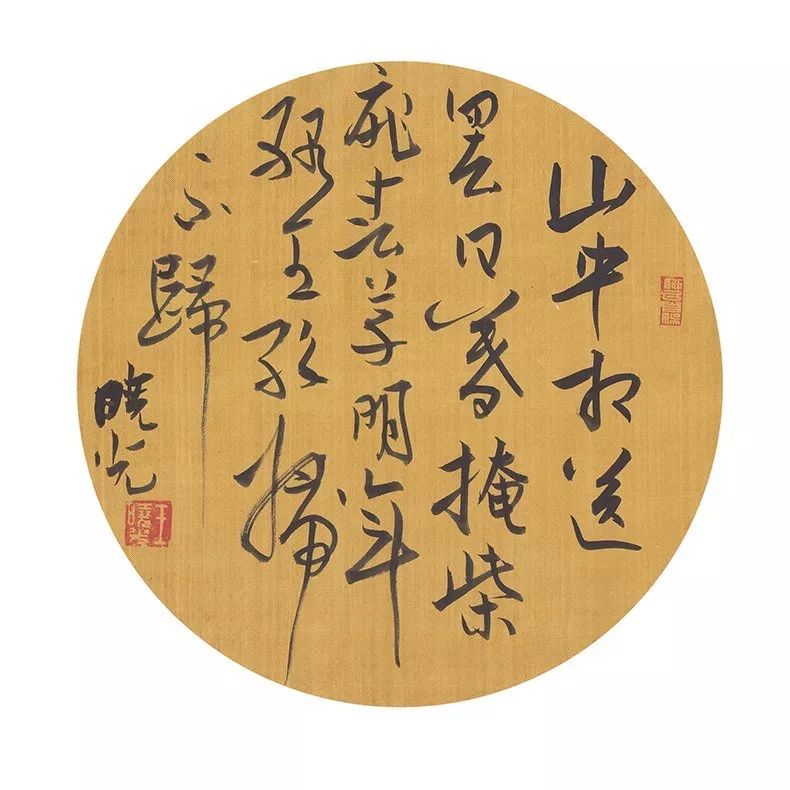 山中相送
罷日暮掩柴
扉春草明年
綠王孫歸
不歸
曉光